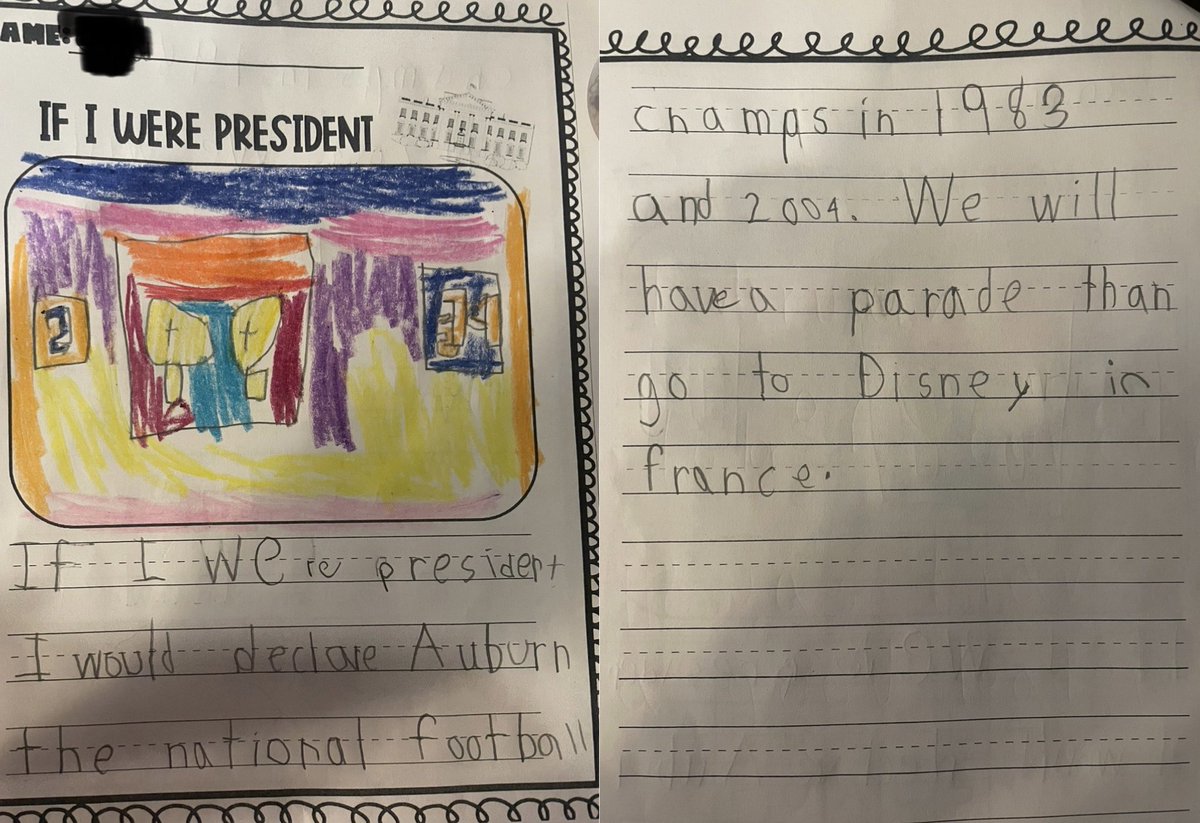 AME:
IF I WERE PRESIDENT
2
If I were president
I would declare Auburn
the national football
champs in 1983
and 2004. We will
have a parade than
go to Disney in
france.